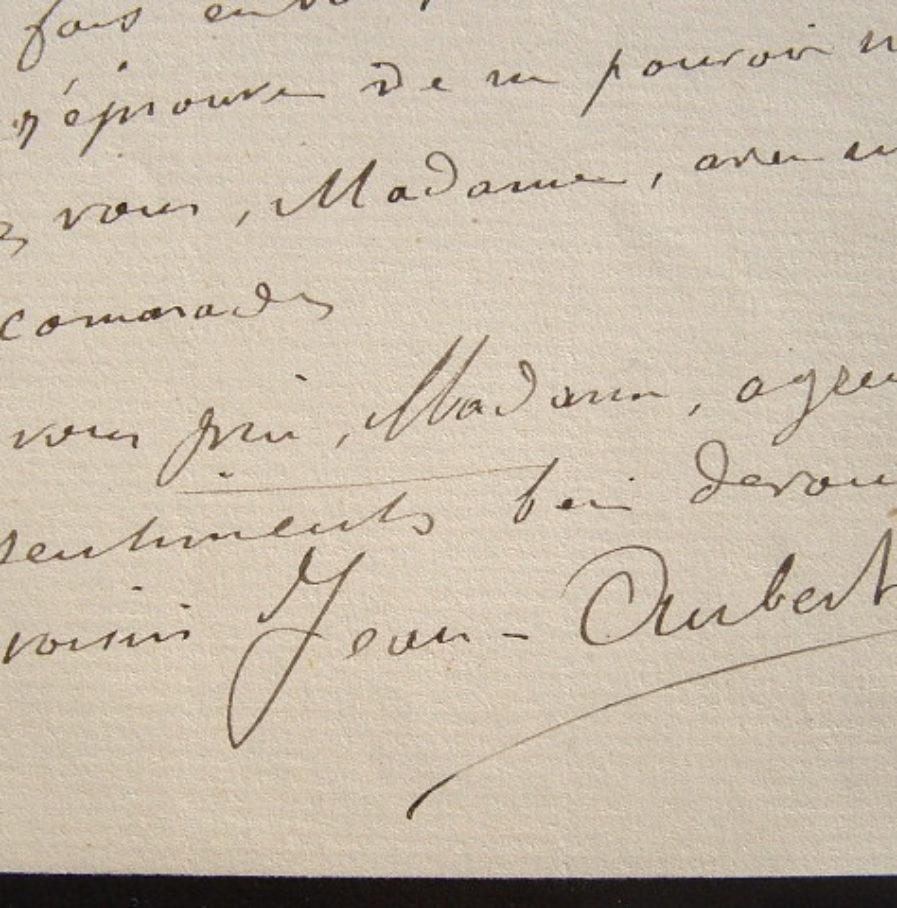 fois
j'éprouve de ne pouvoir
vous, Madame, avec
camarades
vous prie, Madame, agréer
sentiments bien dévou
voisin Jean-Aubert